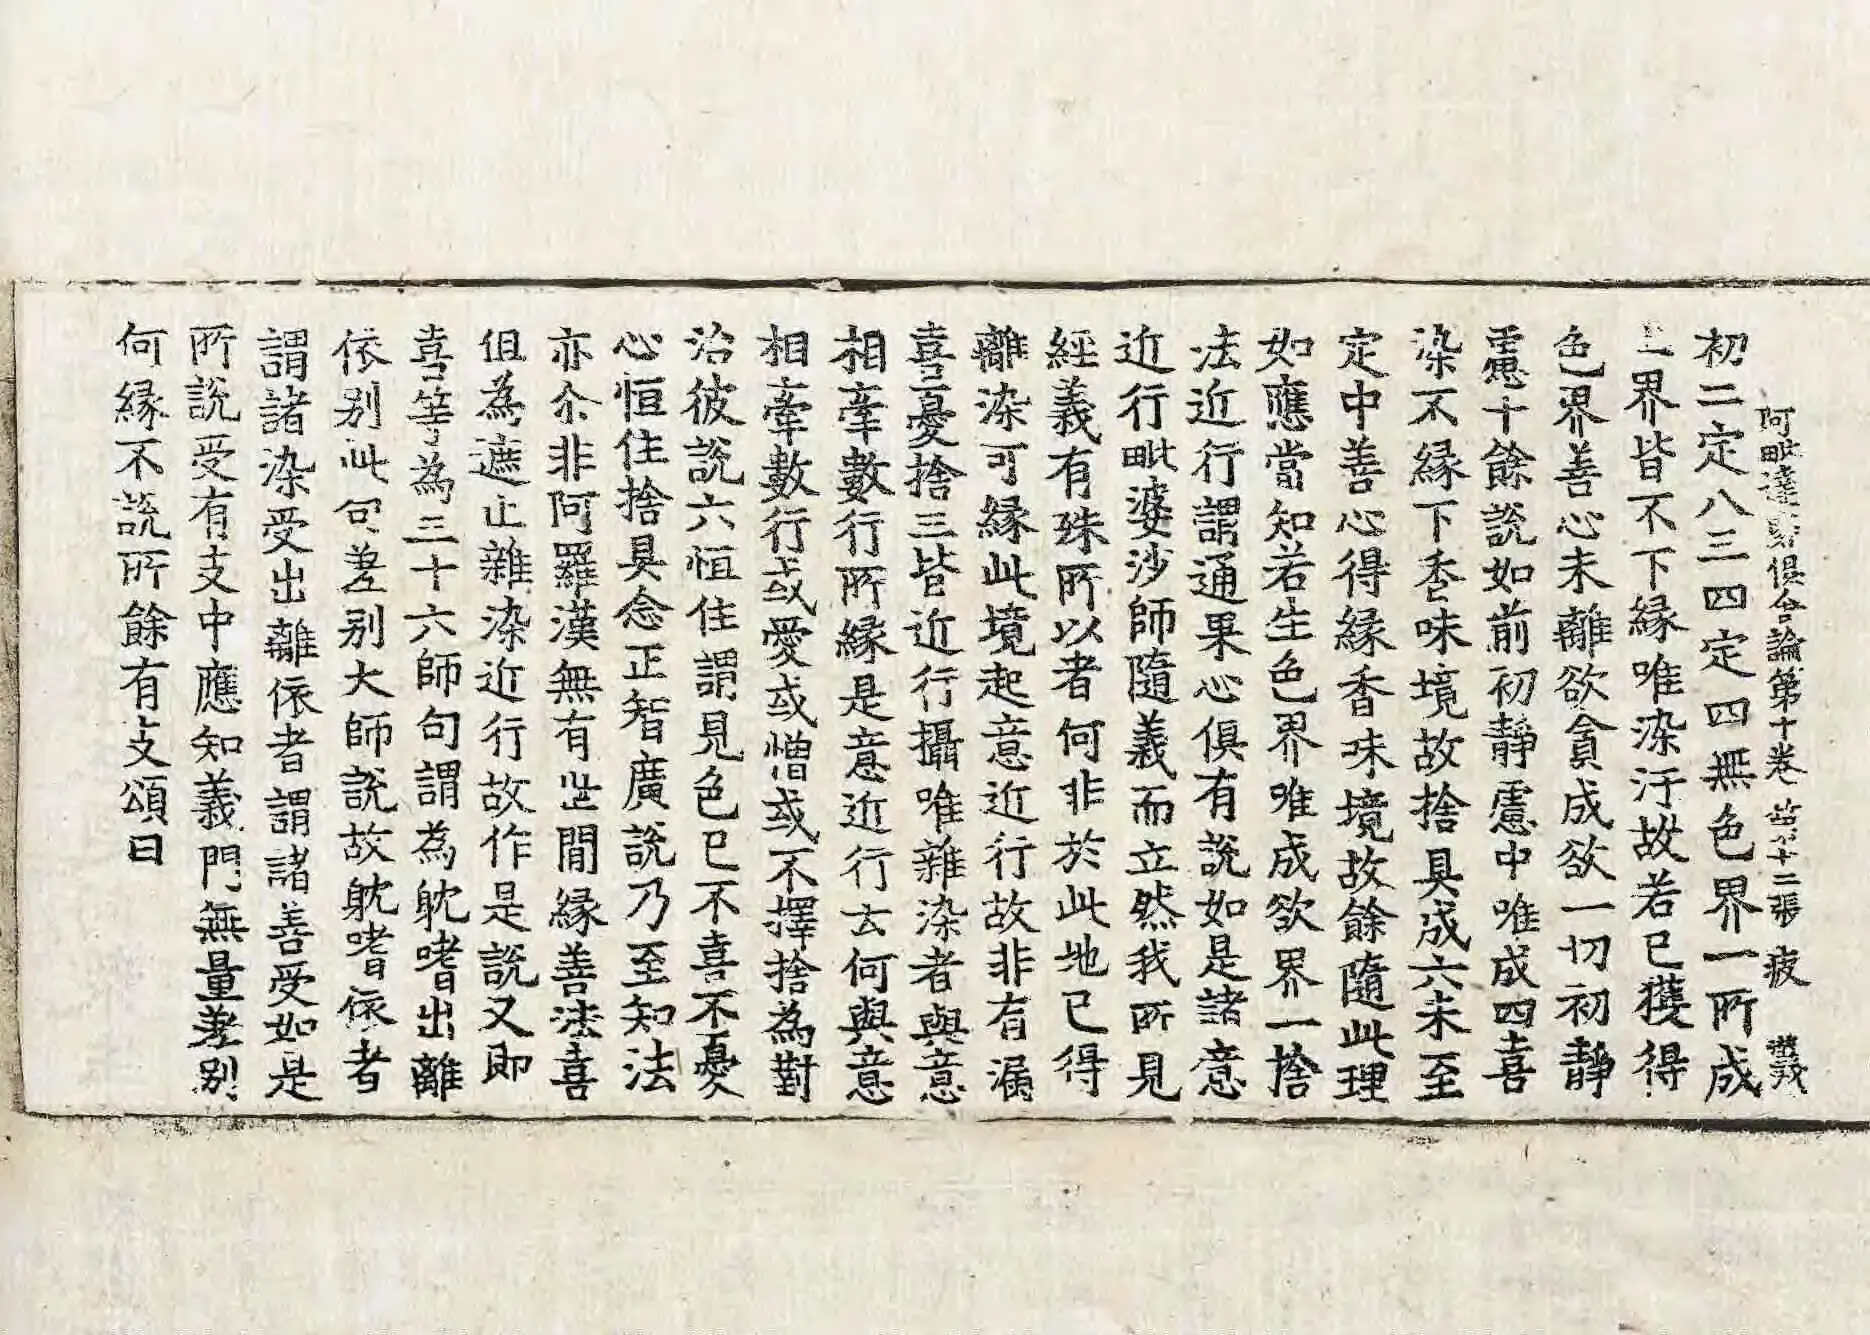 阿毗達磨俱舍論第十卷 第十二張 疲
初二定八三四定四無色界一所成
上界皆不下縁唯染汙故若已獲得
色界善心未離欲貪成欲一切初静
慮十餘説如前初静慮中唯成四喜
染不縁下香味境故捨具成六未至
定中善心得縁香味境故餘隨此理
如應當知若生色界唯成欲界一捨
法近行謂通果心俱有説如是諸意
近行毗婆沙師隨義而立然我所見
經義有殊所以者何非於此地已得
離染可縁此境起意近行故非有漏
喜憂捨三皆近行攝唯雜染者與意
相牽數行所縁是意近行云何與意
相牽數行或愛或憎或不擇捨為對
治彼説六恒住謂見色已不喜不憂
心恒住捨具念正智廣説乃至知法
亦尒非阿羅漢無有世間縁善法喜
但為遮止雜染近行故作是説又即
喜等為三十六師句謂為躭嗜出離
依别此句差别大師説故躭嗜依者
謂諸染受出離依者謂諸善受如是
所説受有支中應知義門無量差别
何縁不説所餘有支頌曰